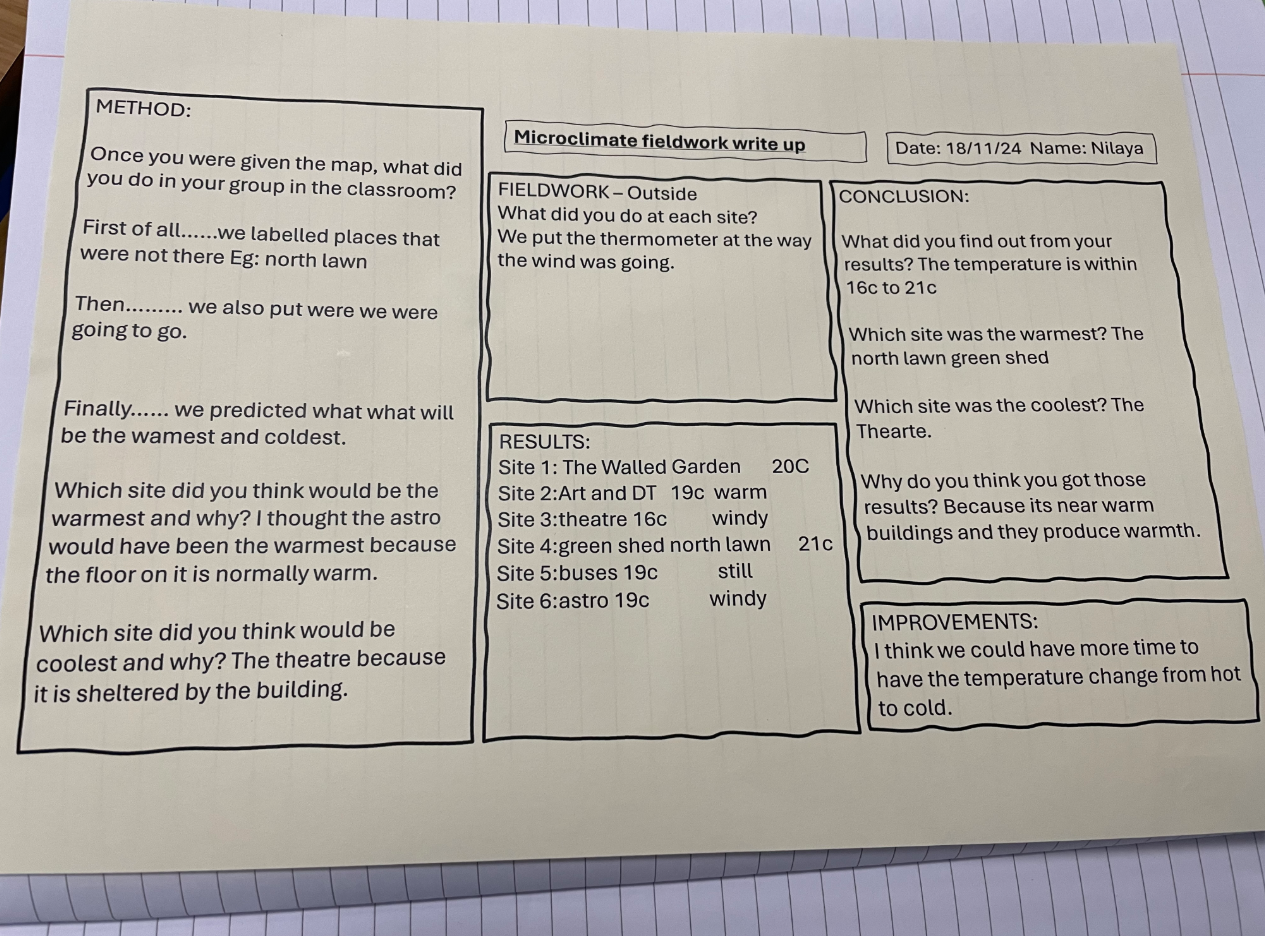 METHOD:
Once you were given the map, what did
you do in your group in the classroom?
First of all......we labelled places that
were not there Eg: north lawn
Then......... we also put were we were
going to go.
Finally...... we predicted what what will
be the wamest and coldest.
Which site did you think would be the
warmest and why? I thought the astro
would have been the warmest because
the floor on it is normally warm.
Which site did you think would be
coolest and why? The theatre because
it is sheltered by the building.
Microclimate fieldwork write up
Date: 18/11/24 Name: Nilaya
FIELDWORK – Outside
What did you do at each site?
We put the thermometer at the way
the wind was going.
RESULTS:
Site 1: The Walled Garden 20C
Site 2:Art and DT 19c warm
Site 3:theatre 16c windy
Site 4:green shed north lawn 21c
Site 5:buses 19c still
Site 6:astro 19c windy
CONCLUSION:
What did you find out from your
results? The temperature is within
16c to 21c
Which site was the warmest? The
north lawn green shed
Which site was the coolest? The
Thearte.
Why do you think you got those
results? Because its near warm
buildings and they produce warmth.
IMPROVEMENTS:
I think we could have more time to
have the temperature change from hot
to cold.